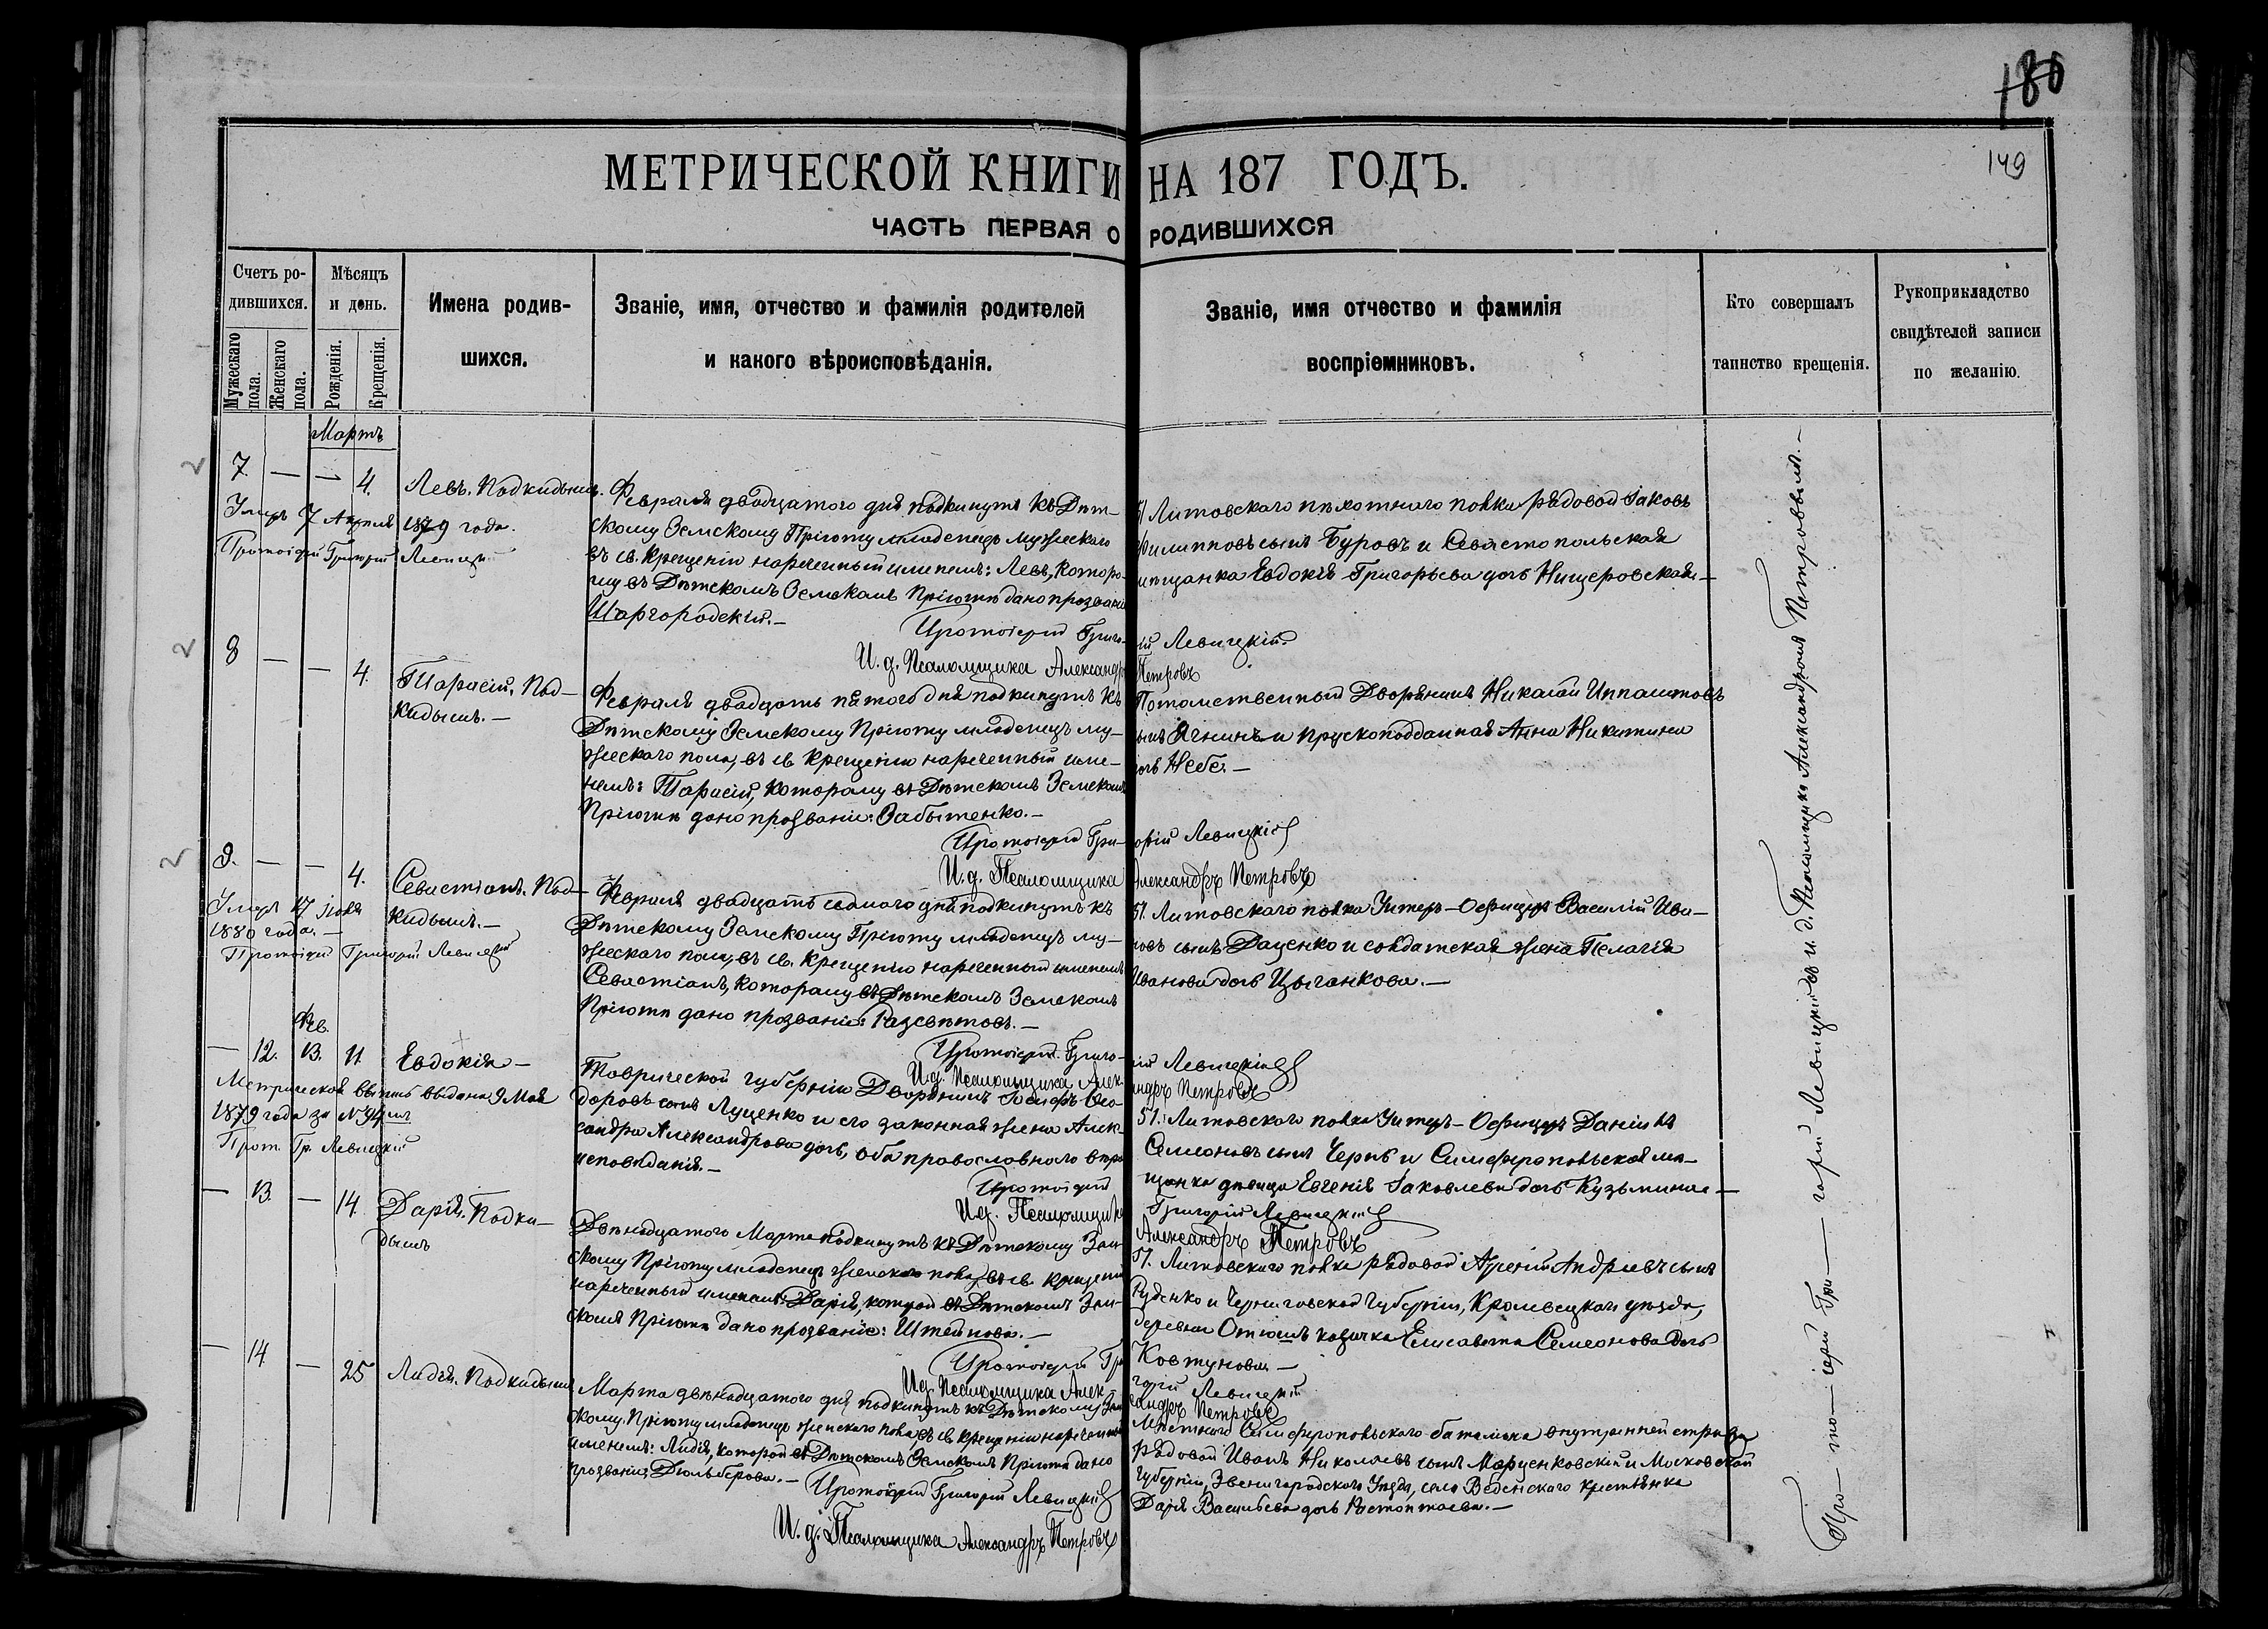 180
149
МЕТРИЧЕСКОЙ КНИГИ НА 187 ГОДЪ.
ЧАСТЬ ПЕРВАЯ О РОДИВШИХСЯ
Счетъ ро-
дившихся.
Мужескаго
пола.
Женскаго
пола.
Мѣсяцъ
и день.
Рожденія.
Крещенія.
Имена родив-
шихся.
Званіе, имя, отчество и фамилія родителей
и какого вѣроисповѣданія.
Званіе, имя отчество и фамилія
воспріемниковъ.
Кто совершалъ
таинство крещенія.
Рукоприкладство
свидѣтелей записи
по желанію.
Мартъ
7. — — 4. Левъ. Подкидышъ.
Умеръ 7 Апреля 1879 года.
Протоіерей Григорій Левицкій
Февраля двадцатого дня подкинутъ къ Дѣт-
скому Земскому Пріюту младенецъ мужескаго
въ св. Крещеніи нареченный именемъ: Левъ, которо-
му въ Дѣтскомъ Земскомъ Пріютѣ дано прозваніе
Шаргородскій.—
51 Литовскаго пѣхотнаго полка рядовой Іаковъ
Филипповъ сынъ Буровъ и Севастопольская
мѣщанка Евдокія Григорьева дочь Нищеровская—
Протоіерей Григорій Левицкій
И. д. Псаломщика Александръ Петровъ
8 — — 4. Тарасій. Под-
кидышъ.—
Февраля двадцать пятого дня подкинутъ къ
Дѣтскому Земскому Пріюту младенецъ му-
жескаго пола, въ св. Крещеніи нареченный име-
немъ: Тарасій, которому въ Дѣтскомъ Земскомъ
Пріютѣ дано прозваніе: Забытенко.—
Потомственный Дворянинъ Николай Ипполитовъ
сынъ Ягнинъ и прускоподданная Анна Никитина
дочь Небе.—
Протоіерей Григорій Левицкій
И. д. Псаломщика Александръ Петровъ
9. — — 4. Севастіанъ. Под-
кидышъ.—
Умеръ 17 Іюля
1880 года.—
Протоіерей Григорій Левицкій
Февраля двадцать седьмого дня подкинутъ къ
Дѣтскому Земскому Пріюту младенецъ му-
жескаго пола, въ св. Крещеніи нареченный именемъ
Севастіанъ, которому въ Дѣтскомъ Земскомъ
Пріютѣ дано прозваніе: Разсвѣтовъ.—
51. Литовскаго полка Унтеръ-Офицеръ Василій Ива-
новъ сынъ Даценко и солдатская жена Пелагія
Иванова дочь Цыганкова.—
Протоіерей Григорій Левицкій
И. д. Псаломщика Александръ Петровъ
Фев.
— 12. 13. 11 Евдокія—
Метрическая выпись выдана 9 Мая
1879 года за №
Прот. Гр. Левицкій
Таврической губерніи Дворянинъ Іосифъ Ѳео-
доровъ сынъ Луценко и его законная жена Алек-
сандра Александрова дочь, оба православного вѣро
исповѣданія.—
51. Литовскаго полка Унтеръ-Офицеръ Даніилъ
Семеоновъ сынъ Чернъ и Симферопольская мѣ-
щанка дѣвица Евгенія Іаковлева дочь Кузьмина—
Протоіерей Григорій Левицкій
И. д. Псаломщика Александръ Петровъ
— 13. — 14. Дарія. Подки-
дышъ
Двѣнадцатого Марта подкинутъ къ Дѣтскому Зем-
скому Пріюту младенецъ женскаго пола, въ св. Крещеніи
нареченный именемъ: Дарія, которой въ Дѣтскомъ Зем-
скомъ Пріютѣ дано прозваніе: Штейнова.—
51. Литовскаго полка рядовой Андріевъ сынъ
Руденко и Черниговской Губерніи, Кролевецкаго уѣзда,
деревни казачка Елисавета Семеонова дочь
Ковтунова—
Протоіерей Григорій Левицкій
И. д. Псаломщика Александръ Петровъ
— 14 — 25 Лидія. Подкидышъ
Марта двѣнадцатого дня подкинутъ къ Дѣтскому Зем-
скому Пріюту младенецъ женскаго пола, въ св. Крещеніи нареченный
именемъ: Лидія, которой въ Дѣтскомъ Земскомъ Пріютѣ дано
прозваніе: Дюльберова.—
Мѣстнаго Симферопольскаго баталіона внутренней стражи
рядовой Иванъ Николаевъ сынъ Марценковскій и Московской
губерніи, Звенигородскаго Уѣзда, села Веденскаго крестьянка
Дарія Васильева дочь
Протоіерей Григорій Левицкій
И. д. Псаломщика Александръ Петровъ
Про-то-іерей Гри-горій Левицкій съ и. д. Псаломщика Александромъ Петровымъ.—